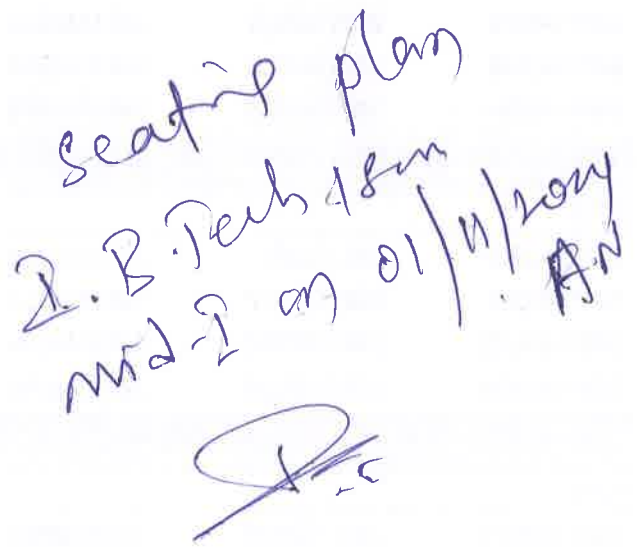 Seating plan
I. B.Tech I Sem
mid-I on 01/11/2024
A.N